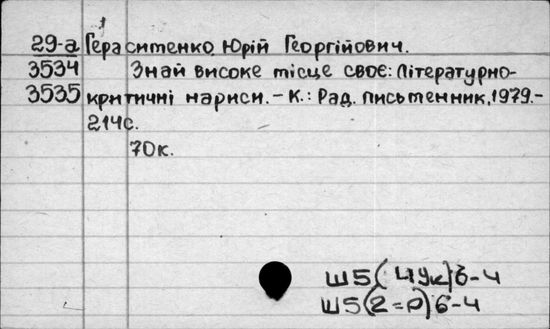 29-а Герасименко, Юрій Георгійович.
3534 Знай високе місце своє: Літературно-
3535 критичні нариси. - К.: Рад. письменник, 1979. -
214с.
70к.
Ш5(4Ук)6-4
Ш5(2=Р)6-4